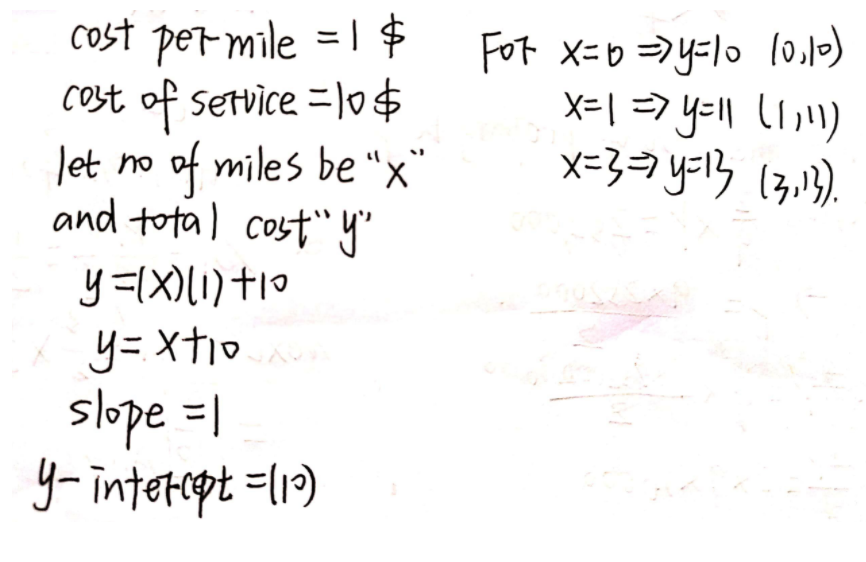 cost per mile = 1 $
cost of service = 10 $
let no of miles be "x"
and total cost "y"
y = (x)(1) + 10
y = x + 10
slope = 1
y-intercept = (10)
For x=0 ⇒ y=10 (0,10)
x=1 ⇒ y=11 (1,11)
x=3 ⇒ y=13 (3,13).